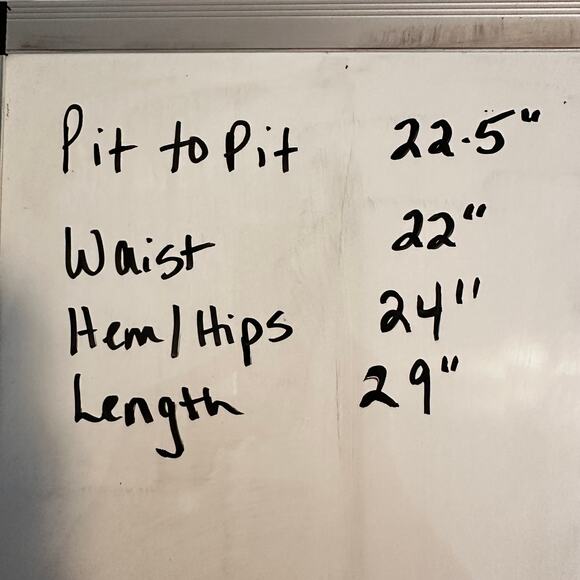 Pit to Pit 22.5"
Waist 22"
Hem/Hips 24"
Length 29"